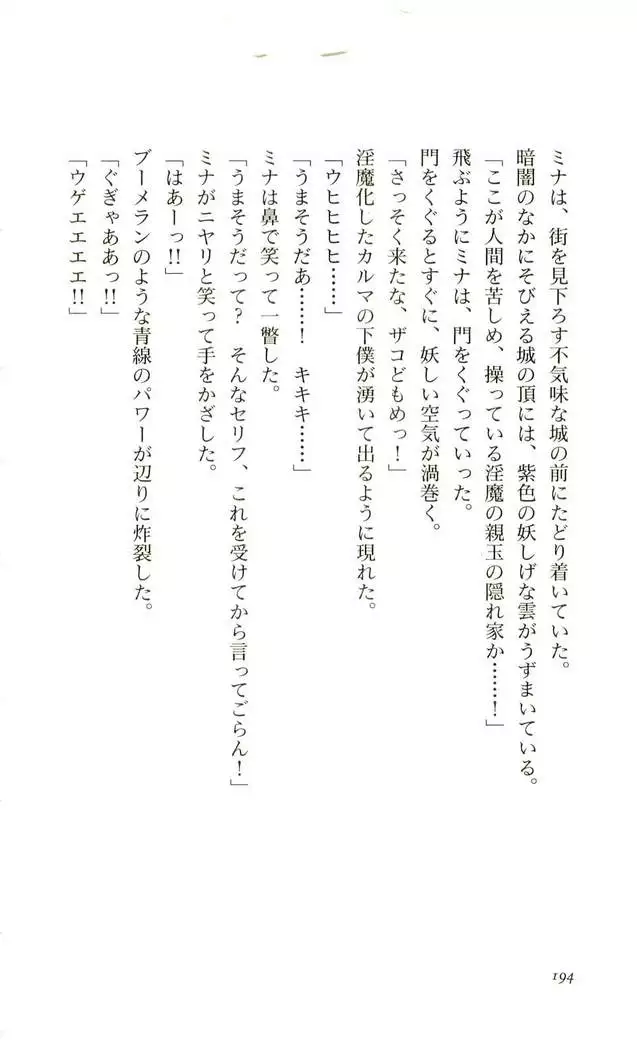 ミナは、街を見下ろす不気味な城の前にたどり着いていた。
暗闇のなかにそびえる城の頂には、紫色の妖しげな雲がうずまいている。
「ここが人間を苦しめ、操っている淫魔の親玉の隠れ家か……！」
飛ぶようにミナは、門をくぐっていった。
門をくぐるとすぐに、妖しい空気が渦巻く。
「さっそく来たな、ザコどもめっ！」
淫魔化したカルマの下僕が湧いて出るように現れた。
「ウヒヒヒヒ……」
「うまそうだあ……！　キキキ……」
ミナは鼻で笑って一瞥した。
「うまそうだって？　そんなセリフ、これを受けてから言ってごらん！」
ミナがニヤリと笑って手をかざした。
「はあーっ!!」
ブーメランのような青線のパワーが辺りに炸裂した。
「ぐぎゃああっ!!」
「ウゲエエエエ!!」
194